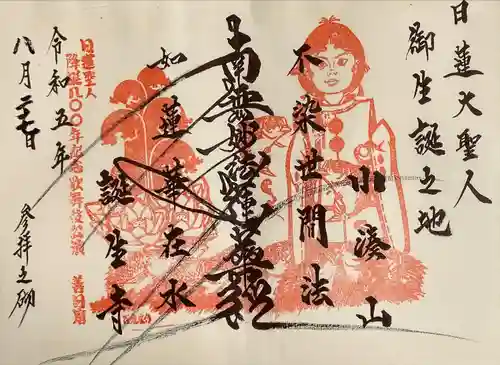 日蓮大聖人
御生誕之地
小湊山
不染世間法
南無妙法蓮華経
如蓮華在水
誕生寺
日蓮聖人
降誕八〇〇年記念歌舞伎
令和五年
八月二十七日
参拝之砌